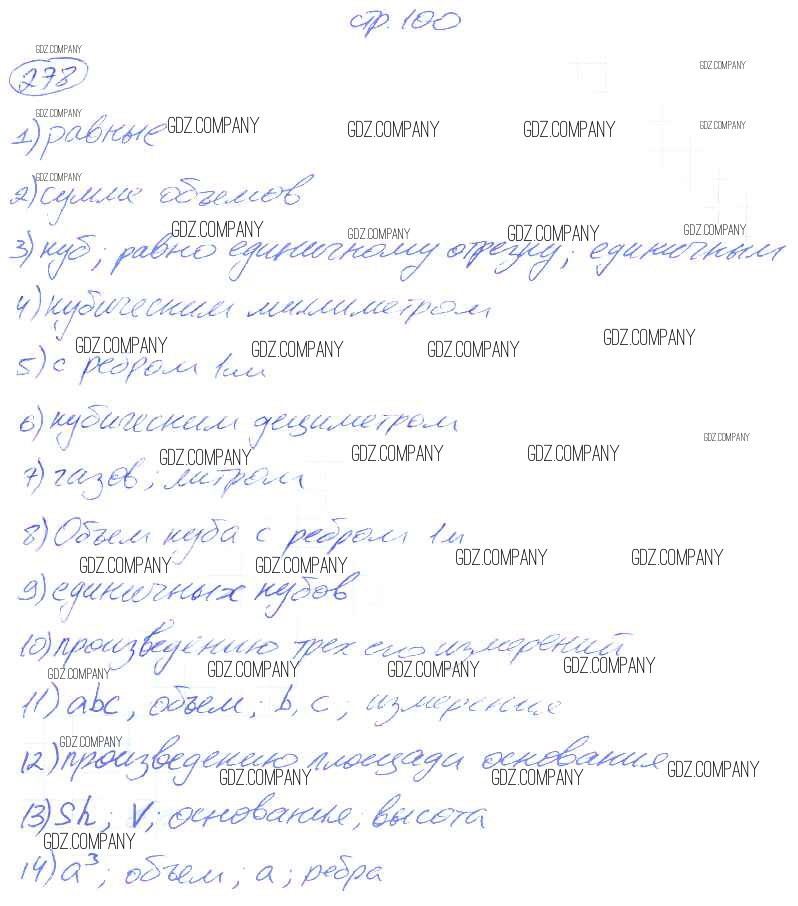 стр. 100
GDZ.COMPANY
278
GDZ.COMPANY
GDZ.COMPANY
1) равные GDZ.COMPANY GDZ.COMPANY GDZ.COMPANY GDZ.COMPANY
GDZ.COMPANY
2) сумме объемов
GDZ.COMPANY GDZ.COMPANY GDZ.COMPANY GDZ.COMPANY
3) куб; равно единичному отрезку; единичным
4) кубическим миллиметром
GDZ.COMPANY GDZ.COMPANY GDZ.COMPANY GDZ.COMPANY
5) с ребром 1см
6) кубическим дециметром
GDZ.COMPANY GDZ.COMPANY GDZ.COMPANY GDZ.COMPANY
7) газов; литром
8) Объем куба с ребром 1м
GDZ.COMPANY GDZ.COMPANY GDZ.COMPANY GDZ.COMPANY
9) единичных кубов
10) произведению трех его измерений
GDZ.COMPANY GDZ.COMPANY GDZ.COMPANY GDZ.COMPANY
11) abc, объем; b, c; измерение
GDZ.COMPANY
12) произведению площади основания
GDZ.COMPANY GDZ.COMPANY GDZ.COMPANY
13) Sh; V; основания; высота
GDZ.COMPANY
14) a³; объем; a; ребра